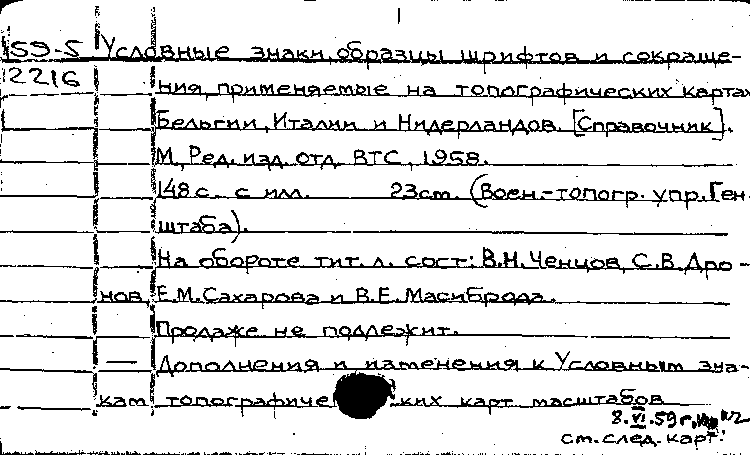 59-5 Условные знаки, образцы шрифтов и сокраще-
12216 ния, применяемые на топографических картах
Бельгии, Италии и Нидерландов. [Справочник].
М., Ред. изд. отд. ВТС, 1958.
148 с. с илл. 23 см. (Воен.-топогр. упр. Ген.
штаба).
На обороте тит. л. сост: В.Н. Ченцов, С.В. Дро-
нов, Е.М. Сахарова и В.Е. Масиброда.
Продаже не подлежит.
— Дополнения и изменения к Условным зна-
кам топографиче ких карт масштабов
8.VI.59 г.
см. след. карт.